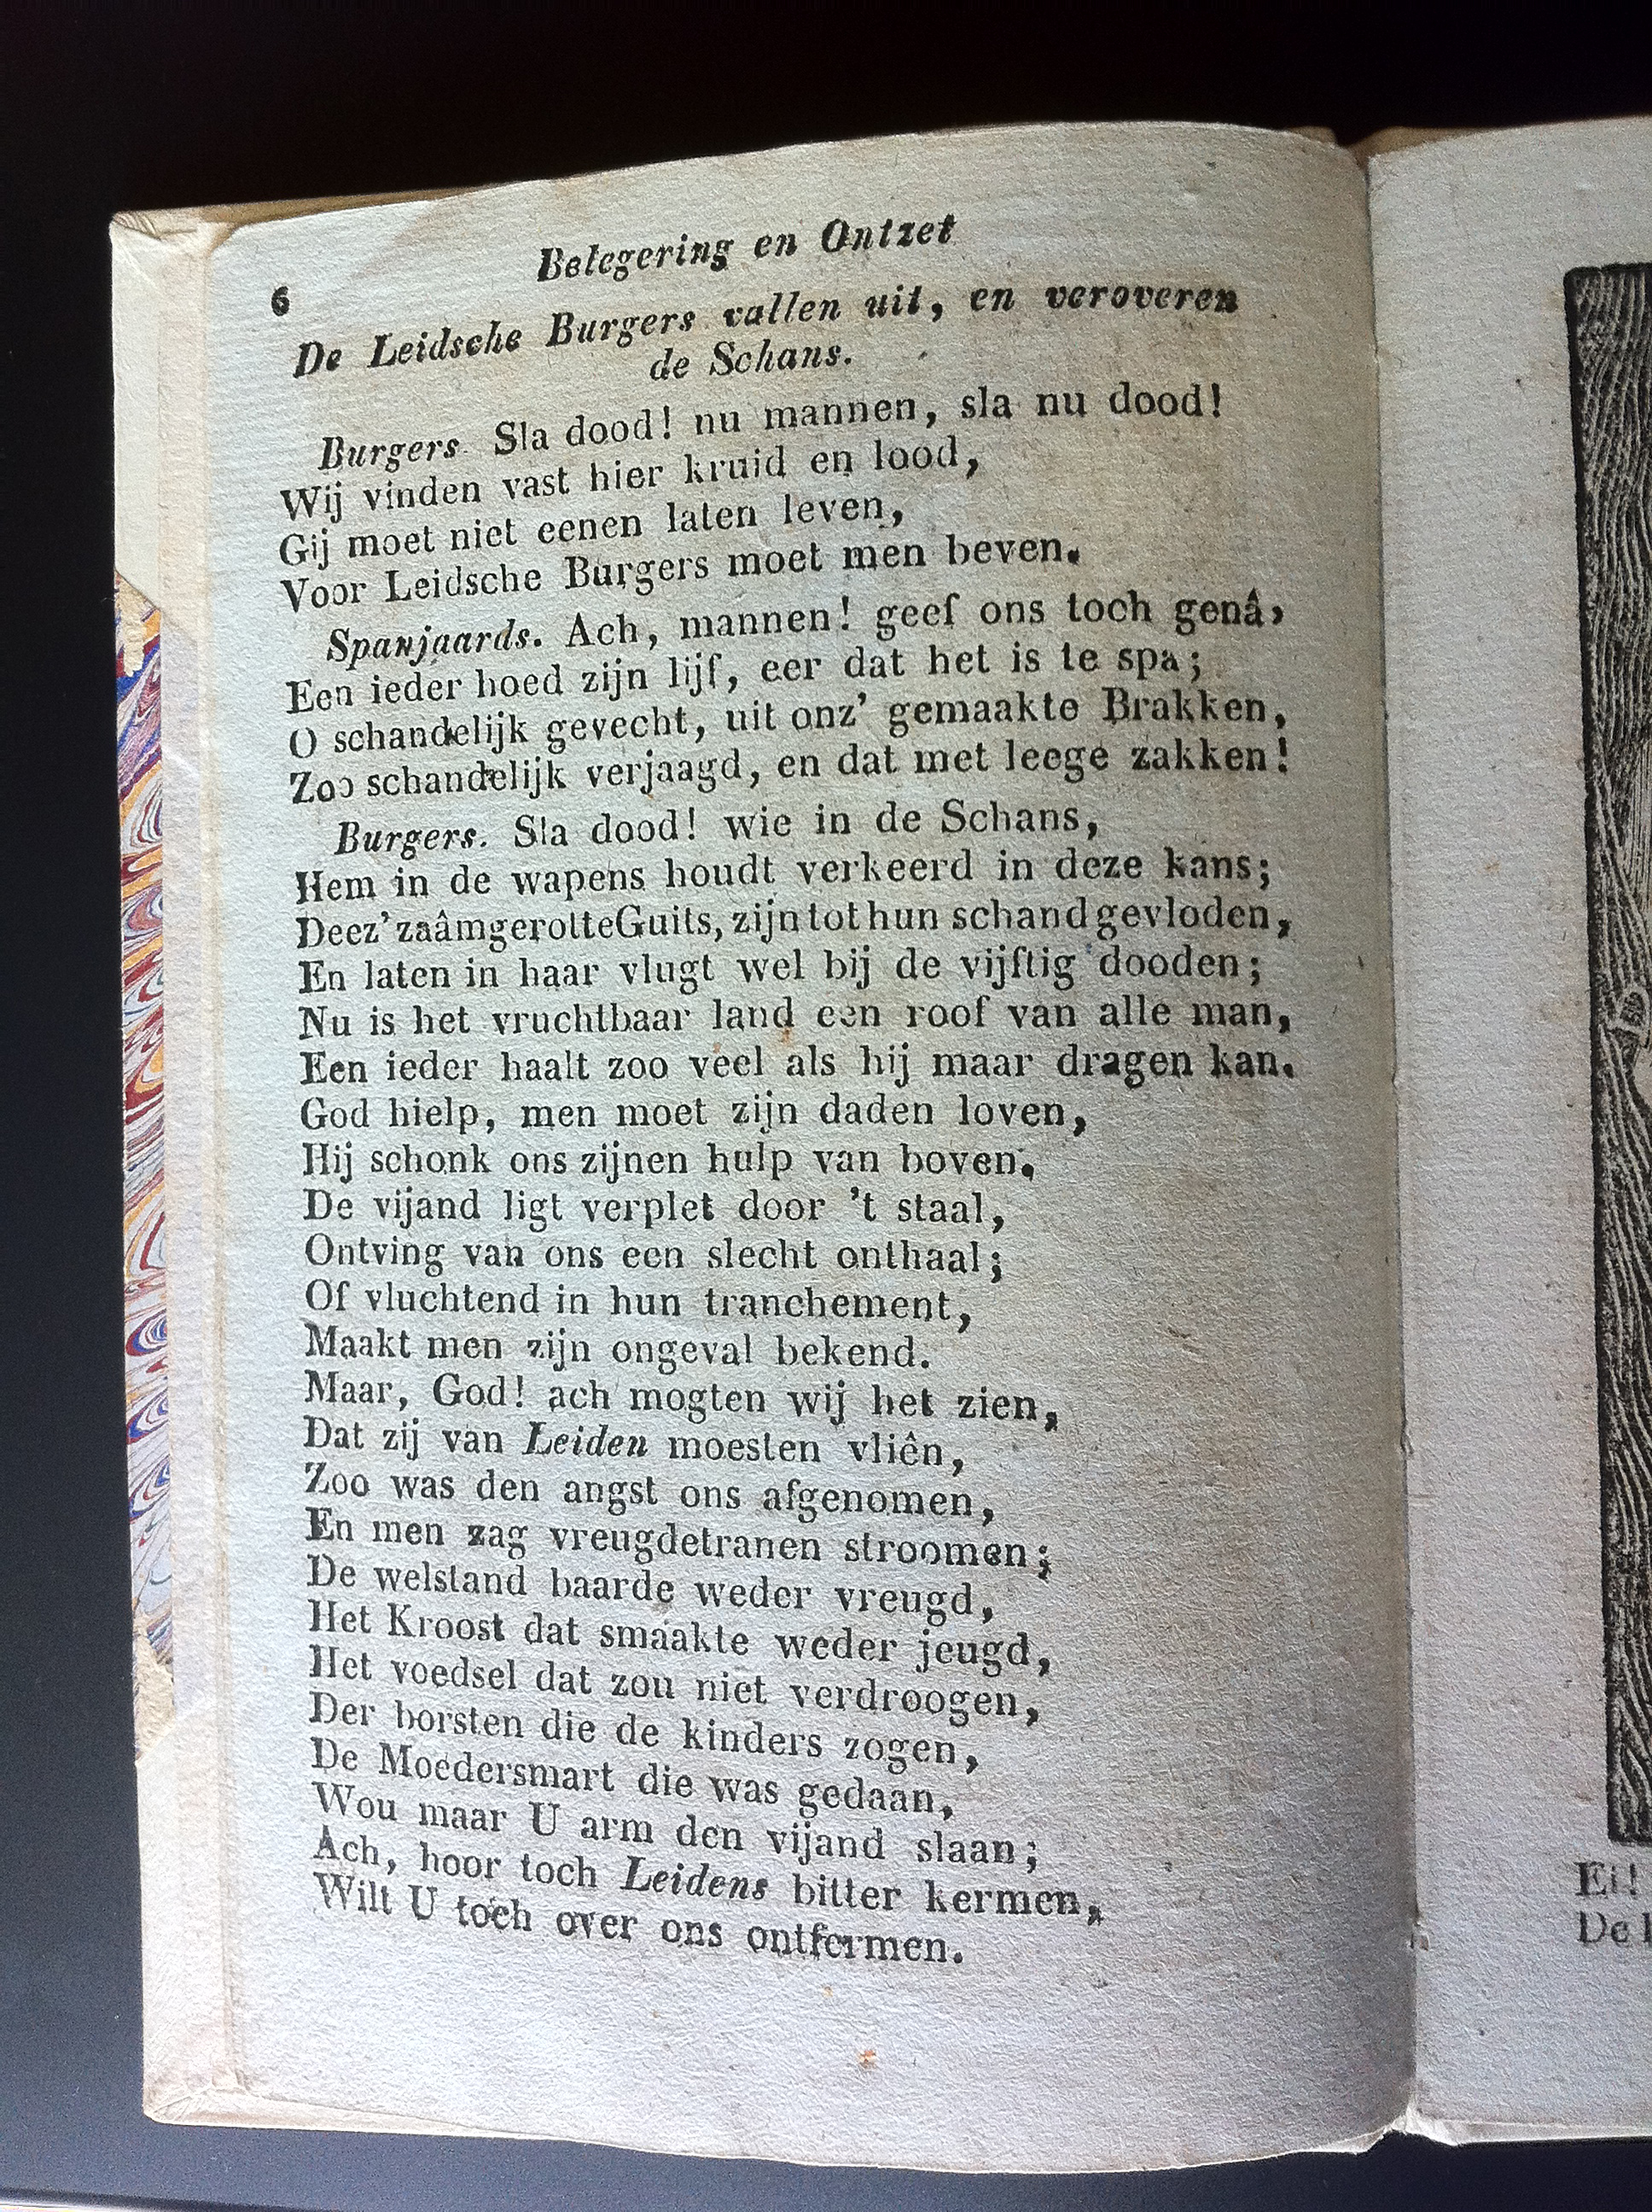 Belegering en Ontzet
6
De Leidsche Burgers vallen uit, en veroveren
de Schans.
Burgers. Sla dood! nu mannen, sla nu dood!
Wij vinden vast hier kruid en lood,
Gij moet niet eenen laten leven,
Voor Leidsche Burgers moet men beven.
Spanjaards. Ach, mannen! geef ons toch genâ,
Een ieder hoed zijn lijf, eer dat het is te spa;
O schandelijk gevecht, uit onz' gemaakte Brakken,
Zoo schandelijk verjaagd, en dat met leege zakken!
Burgers. Sla dood! wie in de Schans,
Hem in de wapens houdt verkeerd in deze kans;
Deez' zaâmgerotte Guits, zijn tot hun schand gevloden,
En laten in haar vlugt wel bij de vijftig dooden;
Nu is het vruchtbaar land een roof van alle man,
Een ieder haalt zoo veel als hij maar dragen kan.
God hielp, men moet zijn daden loven,
Hij schonk ons zijnen hulp van boven,
De vijand ligt verplet door 't staal,
Ontving van ons een slecht onthaal;
Of vluchtend in hun tranchement,
Maakt men zijn ongeval bekend.
Maar, God! ach mogten wij het zien,
Dat zij van Leiden moesten vliên,
Zoo was den angst ons afgenomen,
En men zag vreugdetranen stroomen;
De welstand baarde weder vreugd,
Het Kroost dat smaakte weder jeugd,
Het voedsel dat zou niet verdroogen,
Der borsten die de kinders zogen,
De Moedersmart die was gedaan,
Wou maar U arm den vijand slaan;
Ach, hoor toch Leidens bitter kermen,
Wilt U toch over ons ontfermen.
Ei!
De